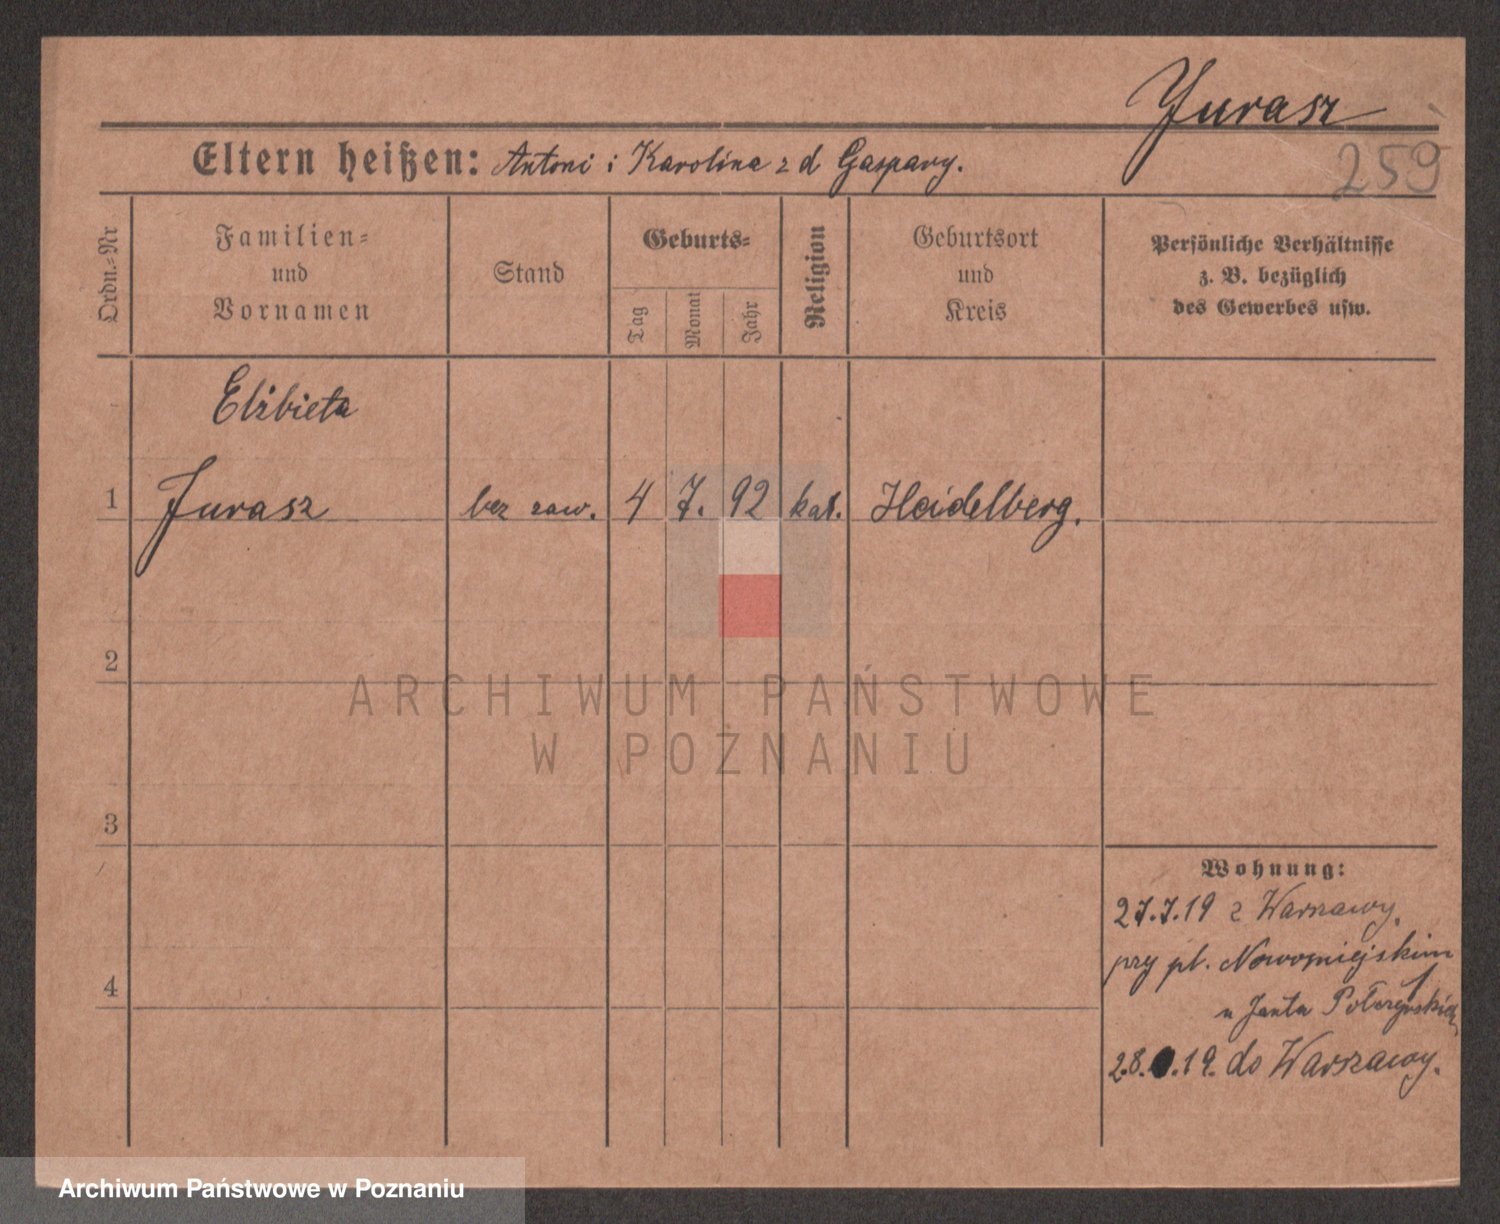 Jurasz
259
Eltern heißen: Antoni i Karolina z d Gaspary.
Ordn.-Nr
Familien-
und
Vornamen
Stand
Geburts-
Tag
Monat
Jahr
Religion
Geburtsort
und
Kreis
Persönliche Verhältnisse
z. B. bezüglich
des Gewerbes usw.
Elżbieta
1 Jurasz bez zaw. 4 7. 92 kat. Heidelberg.
2
ARCHIWUM PAŃSTWOWE
W POZNANIU
3
Wohnung:
27.7.19 z Warszawy.
przy pl. Nowomiejskim
4
u Janta Połczyńskich
28. .19. do Warszawy.
Archiwum Państwowe w Poznaniu